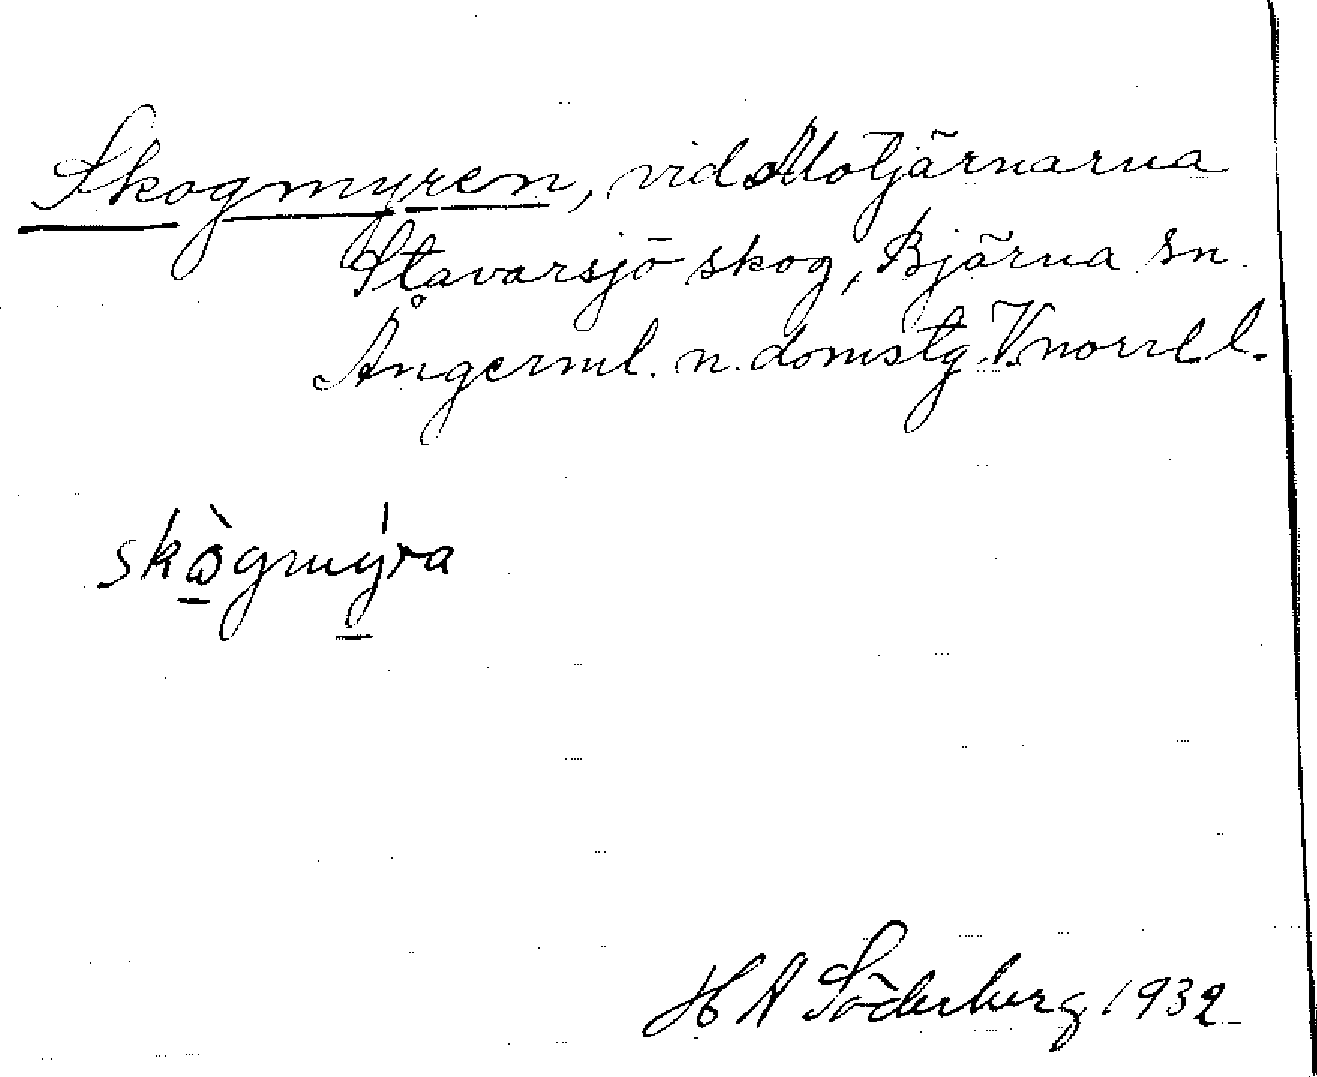 Skogmyren, vid Motjärnarna
Stavarsjö skog, Björna sn.
Ångerml. n. domstg. V.norrl l.
skògmýra
H A Söderberg 1932